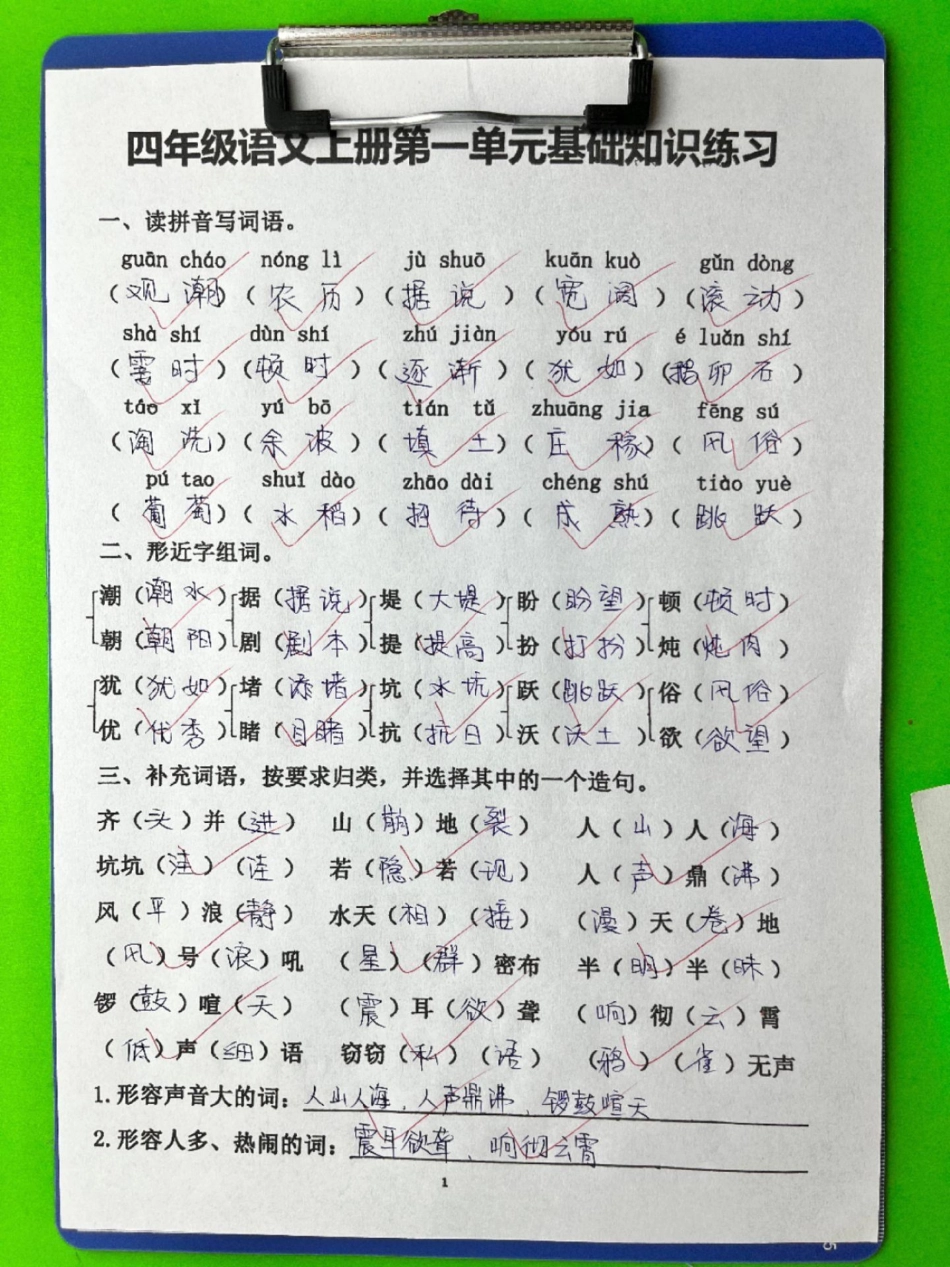 四年级语文上册第一单元基础知识练习
一、读拼音写词语。
guān cháo nóng lì jù shuō kuān kuò gǔn dòng
（观 潮）（农 历）（据 说）（宽 阔）（滚 动）
shà shí dùn shí zhú jiàn yóu rú é luǎn shí
（霎 时）（顿 时）（逐 渐）（犹 如）（鹅 卵 石）
táo xǐ yú bō tián tǔ zhuāng jia fēng sú
（淘 洗）（余 波）（填 土）（庄 稼）（风 俗）
pú tao shuǐ dào zhāo dài chéng shú tiào yuè
（葡 萄）（水 稻）（招 待）（成 熟）（跳 跃）
二、形近字组词。
潮（潮水） 据（据说） 堤（大堤） 盼（盼望） 顿（顿时）
朝（朝阳） 剧（剧本） 提（提高） 扮（打扮） 炖（炖肉）
犹（犹如） 堵（添堵） 坑（水坑） 跃（跳跃） 俗（风俗）
优（优秀） 睹（目睹） 抗（抗日） 沃（沃土） 欲（欲望）
三、补充词语，按要求归类，并选择其中的一个造句。
齐（头）并（进） 山（崩）地（裂） 人（山）人（海）
坑坑（洼）（洼） 若（隐）若（现） 人（声）鼎（沸）
风（平）浪（静） 水天（相）（接） （漫）天（卷）地
（风）号（浪）吼 （星）（群）密布 半（明）半（昧）
锣（鼓）喧（天） （震）耳（欲）聋 （响）彻（云）霄
（低）声（细）语 窃窃（私）（语） （鸦）（雀）无声
1.形容声音大的词：人山人海、人声鼎沸、锣鼓喧天
2.形容人多、热闹的词：震耳欲聋、响彻云霄
1
5